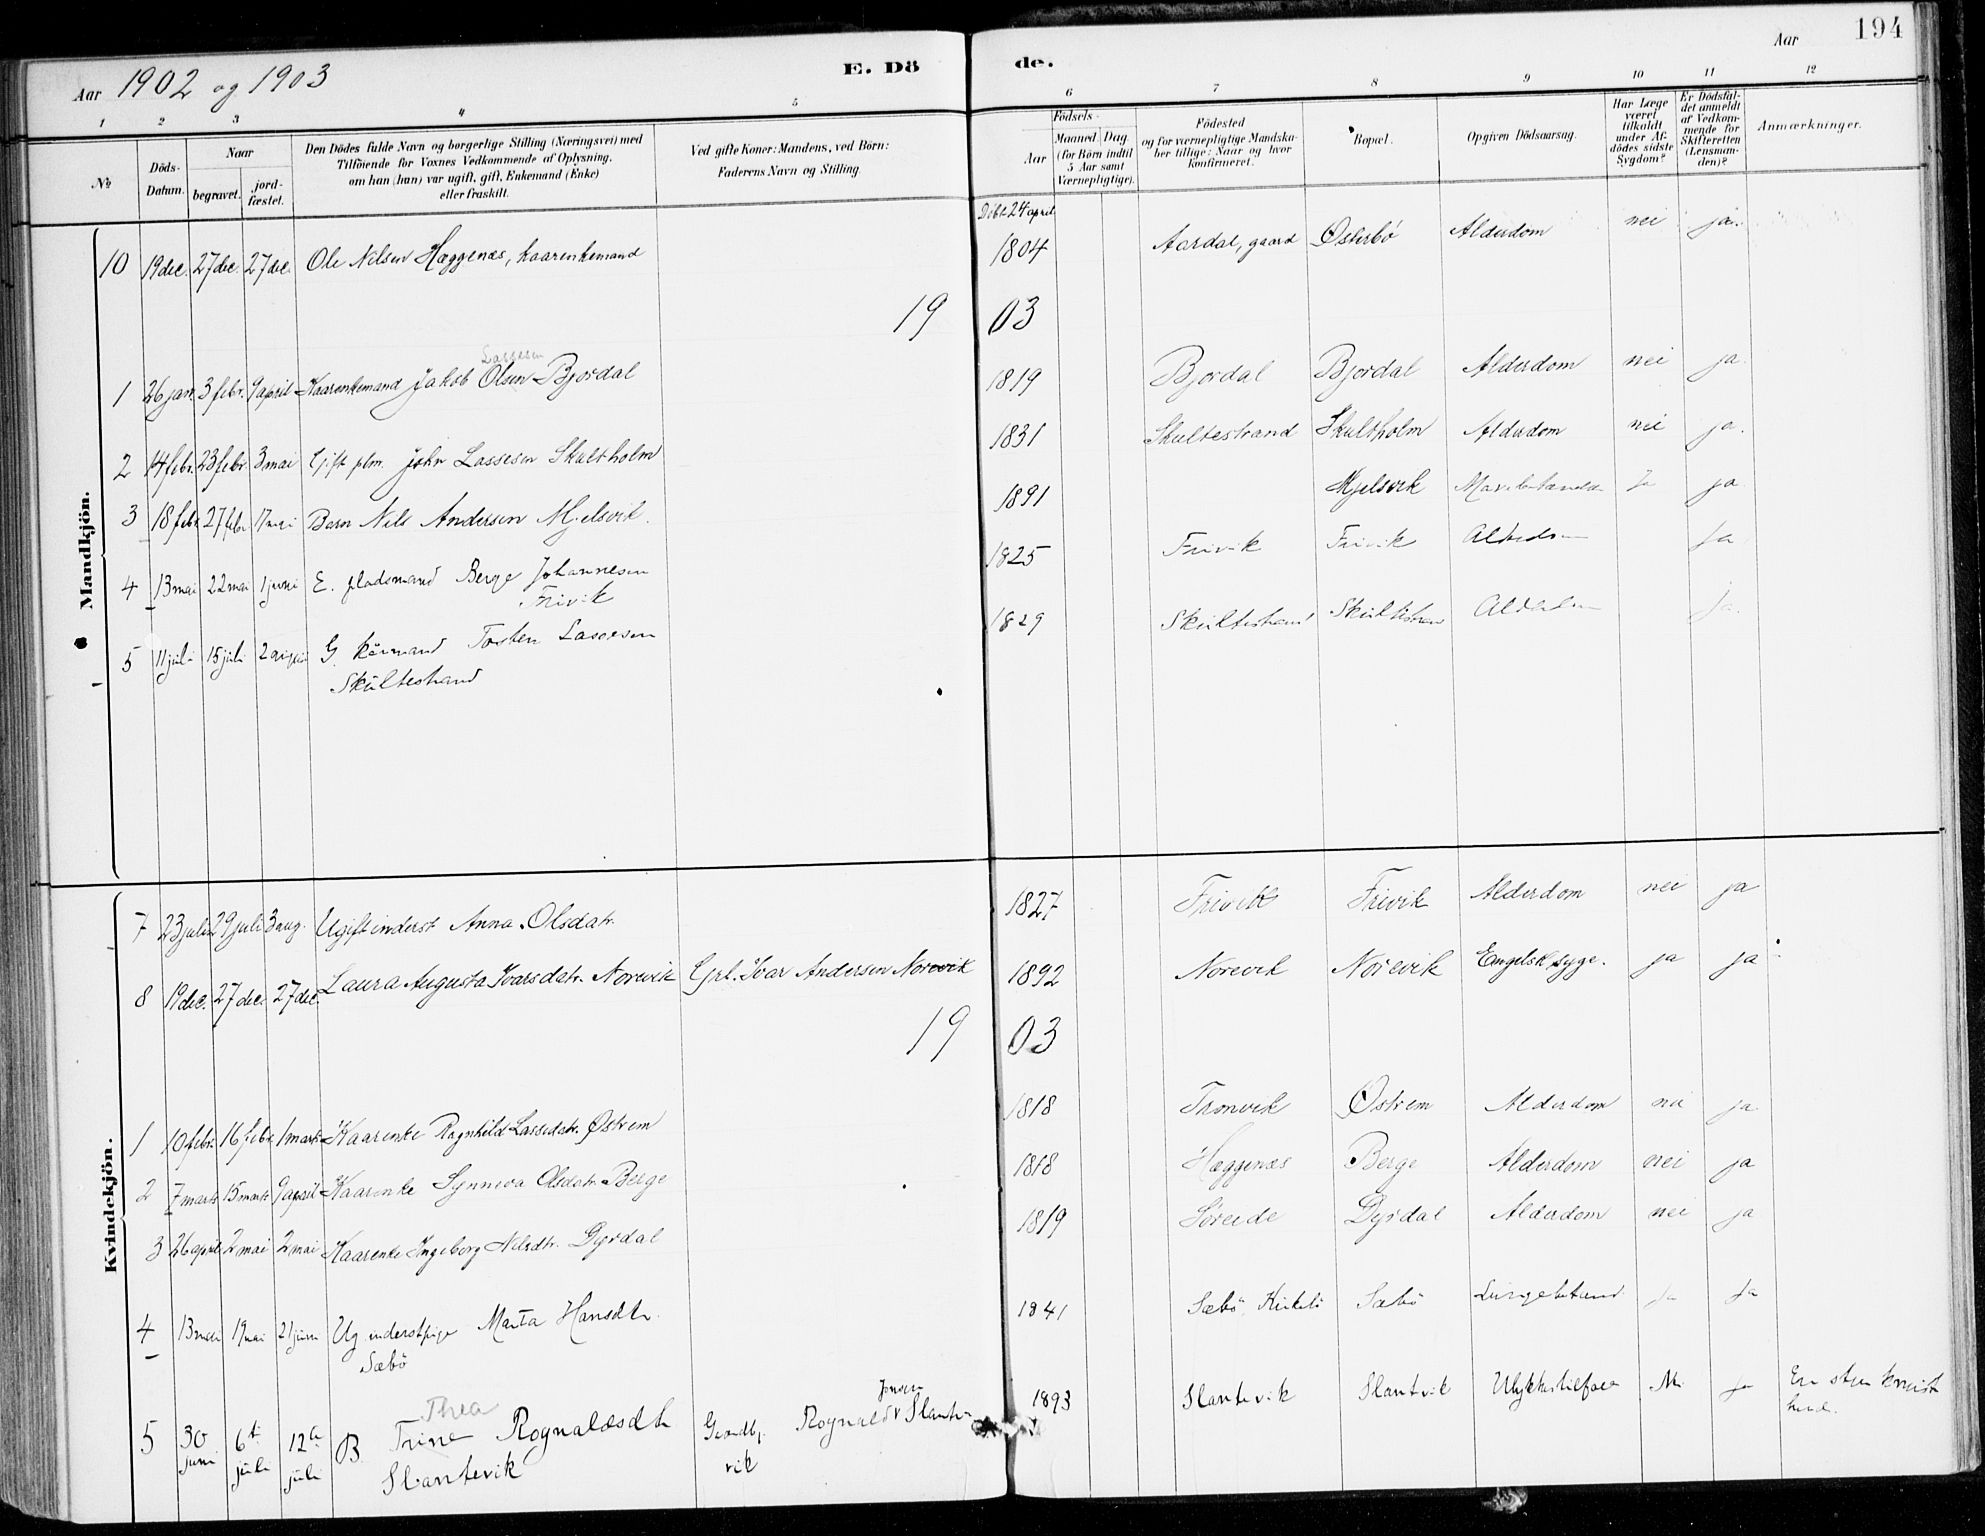 194
Aar 1902 og 1903
E. Dö de.
Aar
1 2 3 4 5 6 7 8 9 10 11 12
No
Döds-Datum.
Naar
begravet.
jord-fæstet.
Den Dödes fulde Navn og borgerlige Stilling (Næringsvei) med
Tilföiende for Voxnes Vedkommende af Oplysning,
om han (hun) var ugift, gift, Enkemand (Enke)
eller fraskilt.
Ved gifte Koner: Mandens, ved Börn:
Faderens Navn og Stilling.
Födsels-
Aar
Maaned. Dag.
(for Börn indtil
5 Aar samt
Værnepligtige).
Födested
og for værnepligtige Mandskaber tillige: Naar og hvor
konfirmeret.
Bopæl.
Opgiven Dödsaarsag.
Har Læge
været
tilkaldt
under Afdödes sidste
Sygdom?
Er Dödsfaldet anmeldt
af Vedkommende for
Skifteretten
(Lensmanden)?
Anmærkninger.
Mandkjön.
Döbt 24 april
10 19 dec. 27 dec. 27 dec. Ole Nilsen Hæggenæs, kaarenkemand 1804 Aardal, gaard Østerbö Alderdom nei ja.
1903
Lassesen
1 26 jan. 3 febr. 9 april Kaarenkemand Jakob Olsen Bjordal 1819 Bjordal Bjordal Alderdom nei ja.
2 14 febr. 23 febr. 3 mai Gift plm. John Lassesen Skultholm 1831 Skultestrand Skultholm Alderdom nei ja.
3 18 febr. 27 febr. 17 mai Barn Nils Andersen Mjelsvik. 1891 Mjelsvik Ja ja
4 13 mai 22 mai 1 juni E. pladsmand Berge Johannesen 1825 Frivik Frivik Ja
Frivik
5 11 juli 15 juli G. kårmand Torsten Lassesen 1829 Ja.
Skultestrand
Kvindekjön.
7 23 juli 29 juli 3 aug. Ugift inderst Anna Olsdatr. 1827 Frivik Frivik Alderdom nei ja
8 19 dec. 27 dec. 27 dec. Laura Augusta Ivarsdatr. Norevik Grb. Ivar Andersen Norevik 1892 Norevik Norevik Engelsk syge. ja ja
1903
1 10 febr. 16 febr. 1 marts Kaarenke Ragnhild Lassedatr. Østrem 1818 Tronvik Østrem Alderdom nei ja
2 7 marts 15 marts 9 april Kaarenke Synneva Olsdatr. Berge 1818 Hæggenæs Berge Alderdom nei ja
3 26 april 2 mai 2 mai Kaarenke Ingeborg Nilsdtr. Dyrdal 1819 Söreide Dyrdal Alderdom nei ja
4 13 mai 19 mai 21 juni Ug. inderstpige Marta Hansdtr. 1841 Sæbö Sæbö Ja Ja
Sæbö
Thea Jonsen
5 30 juni 6t juli 12te juli B. Trine Rognaldsdtr. Rognald 1893 Slantevik Slantvik Ulykkestilfæl Nei ja En sten knust
Slantevik vik